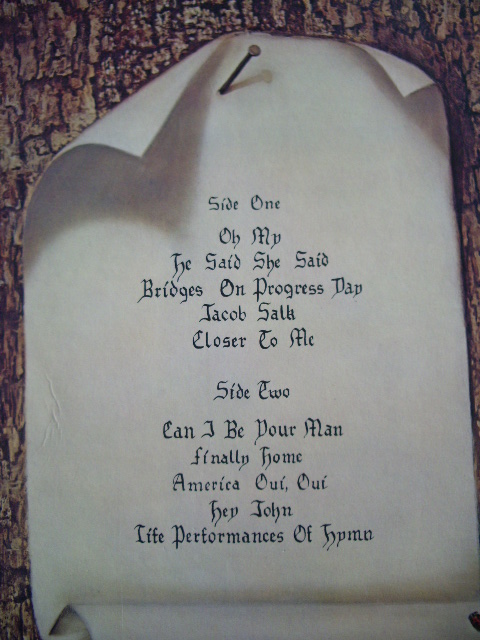 Side One
Oh My
He Said She Said
Bridges On Progress Day
Jacob Salk
Closer To Me
Side Two
Can I Be Your Man
Finally Home
America Oui, Oui
Hey John
Life Performances Of Hymn